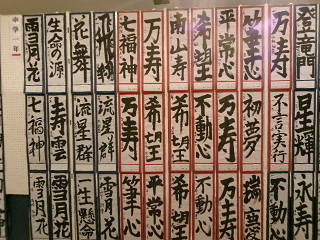 登竜門
万寿
筆心
平常心
希望
南山寿
万寿
七福神
花舞
生命の源
雪月花
中学一年
星輝
不言実行
初夢
万寿
不動心
希望
希望
万寿
流星群
流星群
寿雲
七福神
永寿
不動心
万寿
不動心
希望
平常心
筆心
雪月花
生懸命
雪月花
雪月花